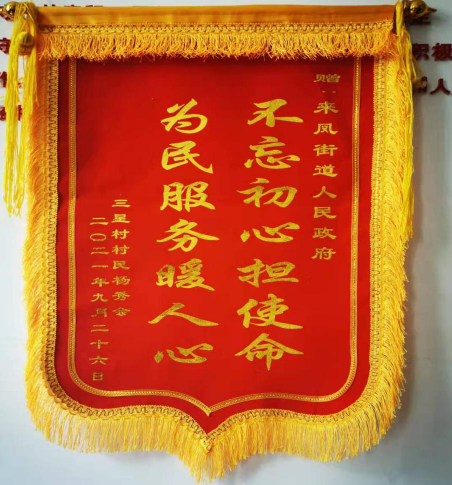 赠：来凤街道人民政府
不忘初心担使命
为民服务暖人心
三星村村民杨秀会
二〇二一年九月二十六日